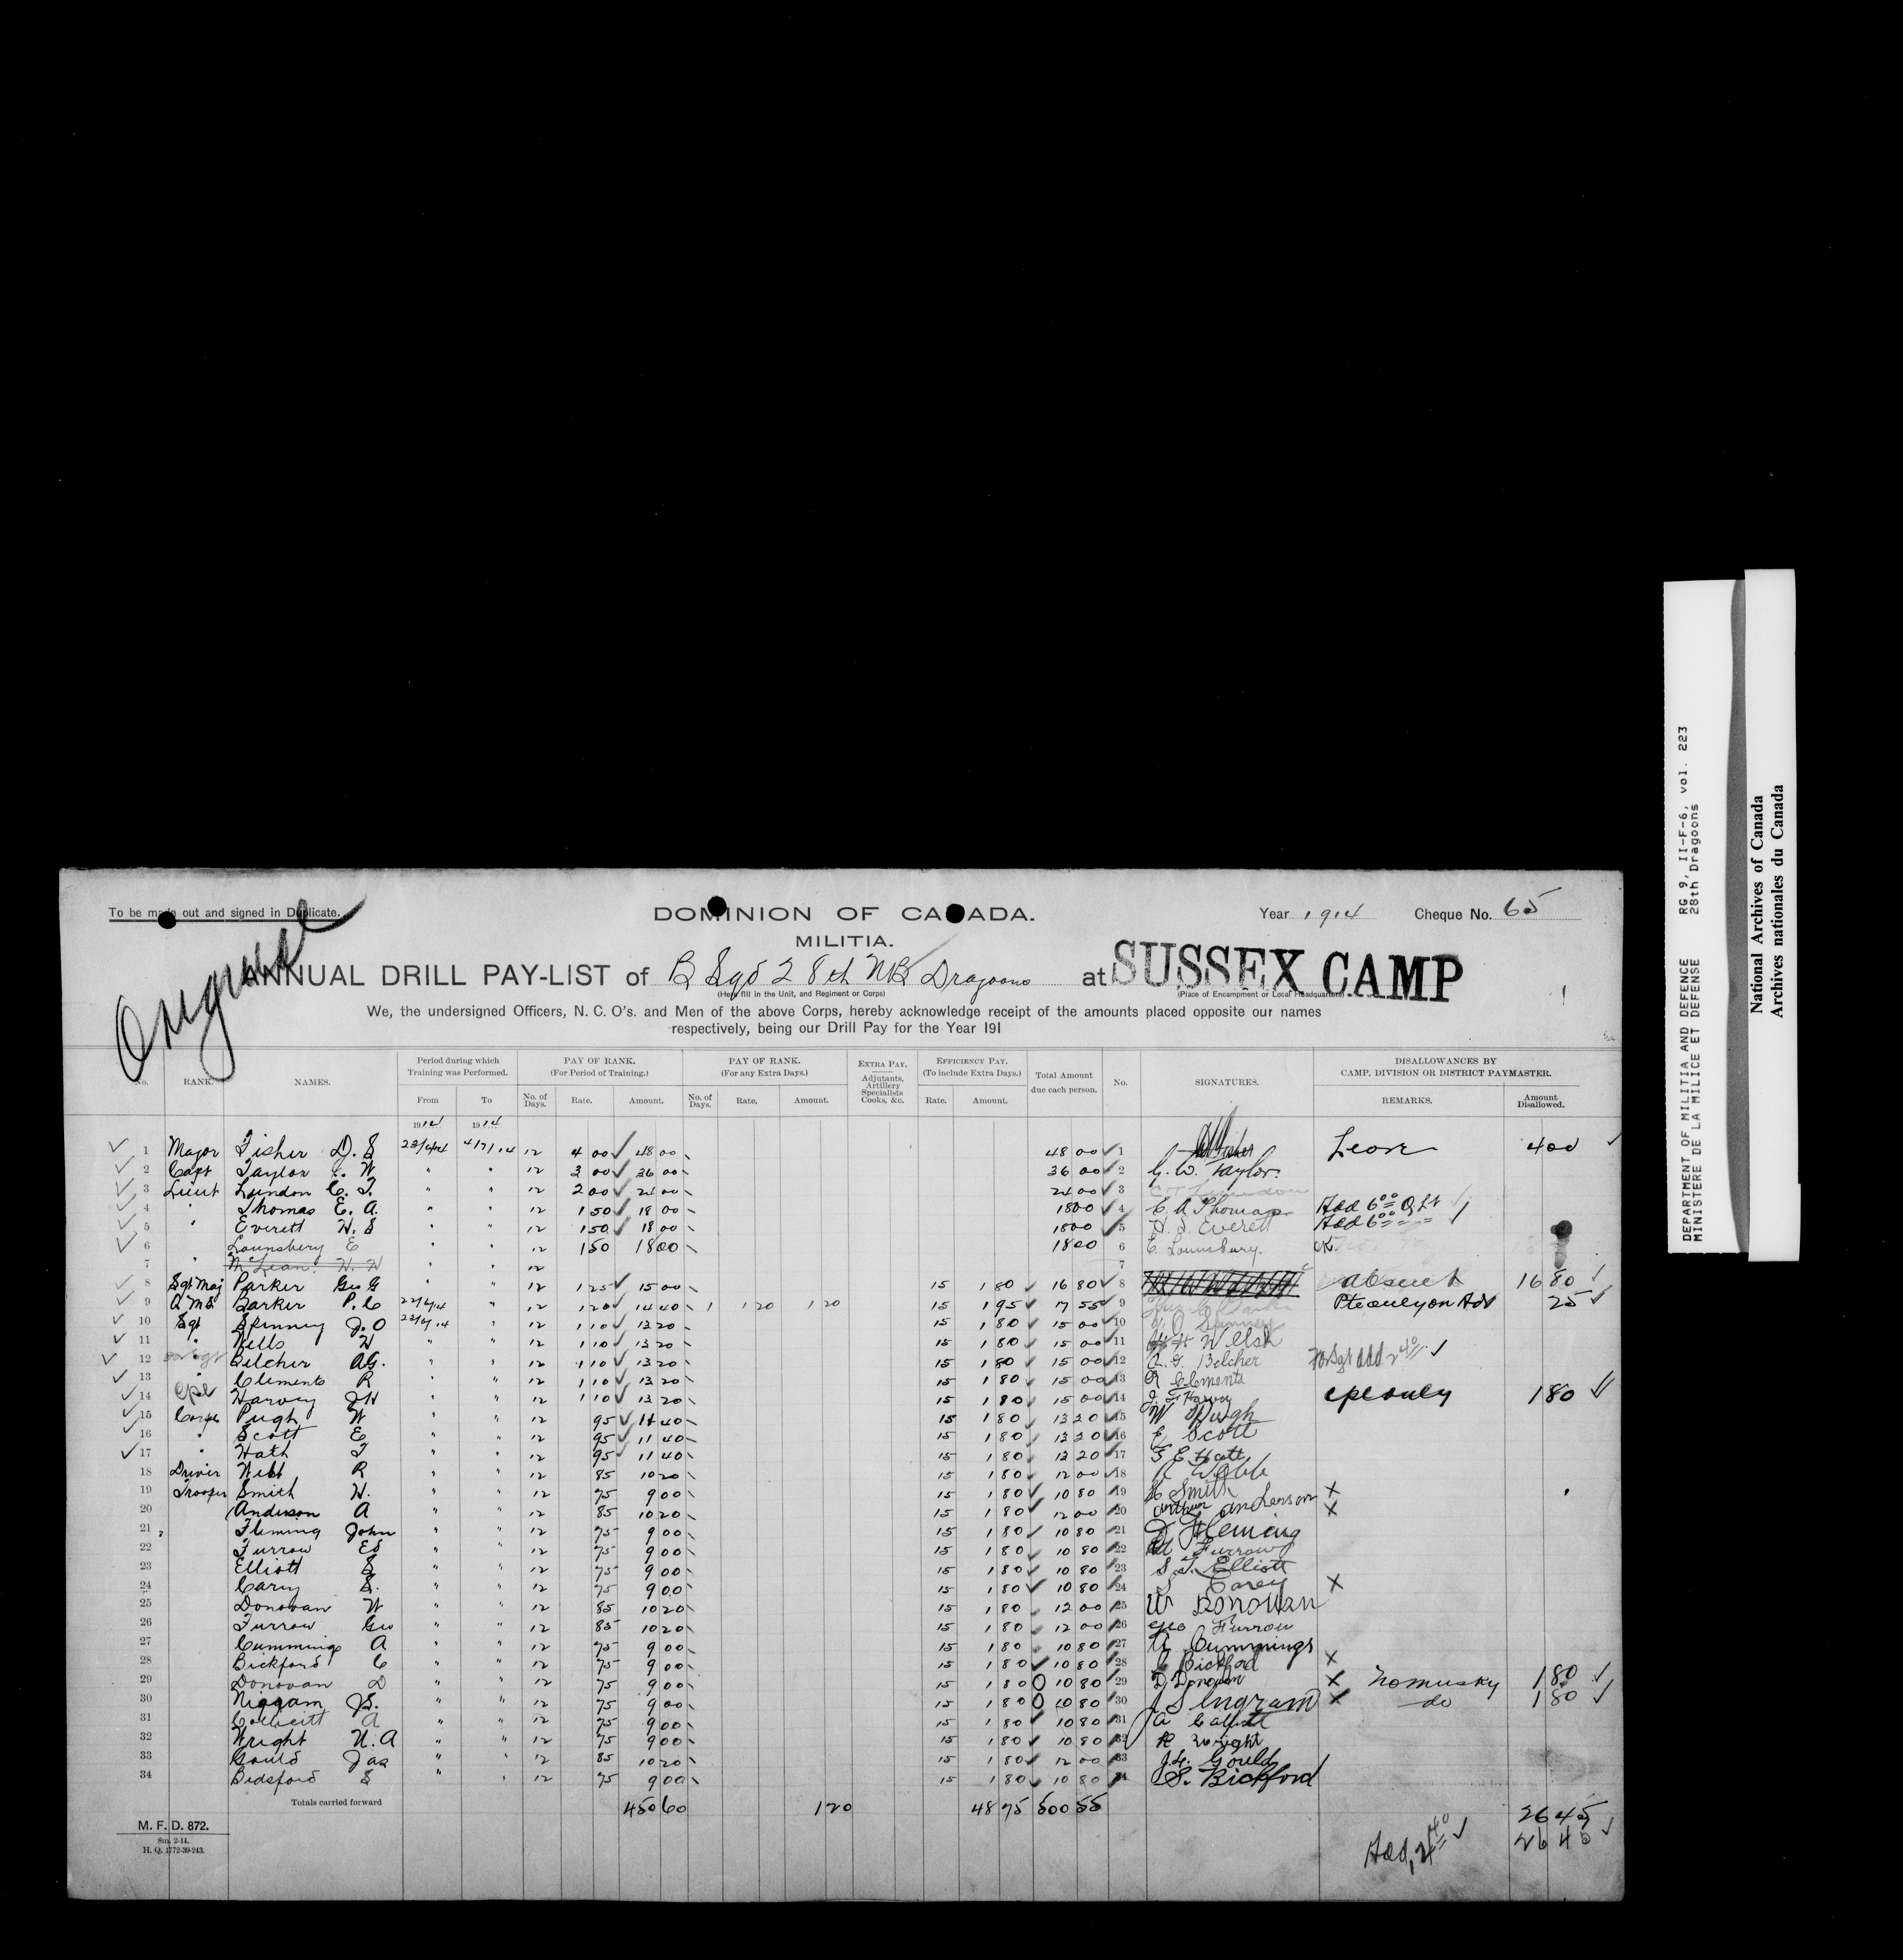 To be made out and signed in Duplicate.
DOMINION OF CANADA.
Year 1914 Cheque No. 65
MILITIA.
Original
ANNUAL DRILL PAY-LIST of B Sqd 28th NB Dragoons at SUSSEX CAMP
(Here fill in the Unit, and Regiment or Corps) (Place of Encampment or Local Headquarters)
We, the undersigned Officers, N. C. O's. and Men of the above Corps, hereby acknowledge receipt of the amounts placed opposite our names
respectively, being our Drill Pay for the Year 191
No. RANK. NAMES. Period during which Training was Performed. From To PAY OF RANK. (For Period of Training.) No. of Days. Rate. Amount. PAY OF RANK. (For any Extra Days.) No. of Days. Rate. Amount. EXTRA PAY. Adjutants, Artillery Specialists Cooks, &c. EFFICIENCY PAY. (To include Extra Days.) Rate. Amount. Total Amount due each person. No. SIGNATURES. DISALLOWANCES BY CAMP, DIVISION OR DISTRICT PAYMASTER. REMARKS. Amount Disallowed.
1914 1914
1 Major Fisher D. S 12 4 00 48 00 48 00 1 Leave 4 00
2 Capt Taylor W " " 12 3 00 36 00 36 00 2 G. W. Taylor.
3 Lieut Lundon C. T. " " 12 2 00 24 00 24 00 3
4 " Thomas E. A. " " 12 1 50 18 00 18 00 4 E. A Thomas Add 6 00
5 " Everett H. S " " 12 1 50 18 00 18 00 5 H. S. Everett Add 6 00
6 Lounsbery E " " 12 1 50 18 00 18 00 6 E. Lounsbury.
7 " McLean H. H " " 12 7
8 Sgt Maj Parker Geo G " " 12 1 25 15 00 15 1 80 16 80 8 absent 16 80
9 Q M S Barker P. C 22/6/14 " 12 1 20 14 40 1 1 20 1 20 15 1 95 17 55 9 25
10 Sgt Spinney J. O 23/6/14 " 12 1 10 13 20 15 1 80 15 00 10 J O Spinney
11 " Wells H " " 12 1 10 13 20 15 1 80 15 00 11 H Welsh
12 Belcher AG. " " 12 1 10 13 20 15 1 80 15 00 12 A. G. Belcher
13 " Clements R " " 12 1 10 13 20 15 1 80 15 00 13 R Clements
14 Cpl Harvey JH " " 12 1 10 13 20 15 1 80 15 00 14 cpl only 1 80
15 Corpl Pugh W " " 12 95 11 40 15 1 80 13 20 15 W Pugh
16 " Scott E " " 12 95 11 40 15 1 80 13 20 16 E Scott
17 " Hath T " " 12 95 11 40 15 1 80 13 20 17
18 Driver Webb R " " 12 85 10 20 15 1 80 12 00 18 R Webb
19 Trooper Smith H. " " 12 75 9 00 15 1 80 10 80 19 H Smith X
20 Anderson A " " 12 85 10 20 15 1 80 12 00 20 Arthur Anderson X
21 Fleming John " " 12 75 9 00 15 1 80 10 80 21 J Fleming
22 Furrow Ed " " 12 75 9 00 15 1 80 10 80 22 Ed Furrow
23 Elliott S " " 12 75 9 00 15 1 80 10 80 23 Elliott
24 Cary S. " " 12 75 9 00 15 1 80 10 80 24 S Carey X
25 Donovan W " " 12 85 10 20 15 1 80 12 00 25 W Donovan
26 Furrow Geo " " 12 85 10 20 15 1 80 12 00 26 Geo Furrow
27 Cummings A " " 12 75 9 00 15 1 80 10 80 27 A Cummings
28 Bickford C " " 12 75 9 00 15 1 80 10 80 28 C Bickford X
29 Donovan D " " 12 75 9 00 15 1 80 10 80 29 D Donovan X No musky 1 80
30 Niggam J S. " " 12 75 9 00 15 1 80 10 80 30 J S Ingram X do 1 80
31 A " " 12 75 9 00 15 1 80 10 80 31 A
32 Wright A " " 12 75 9 00 15 1 80 10 80 32 Wright
33 Gould Jas " " 12 85 10 20 15 1 80 12 00 33 Gould
34 Bedsford S " " 12 75 9 00 15 1 80 10 80 34 S. Bickford
Totals carried forward 450 60 1 20 48 75 500 55 26 45
Add 2 40 26 45
M. F. D. 872.
5m. 2-14.
H. Q. 1772-39-243.
DEPARTMENT OF MILITIA AND DEFENCE RG 9, II-F-6, vol. 223
MINISTERE DE LA MILICE ET DEFENSE 28th Dragoons
National Archives of Canada
Archives nationales du Canada